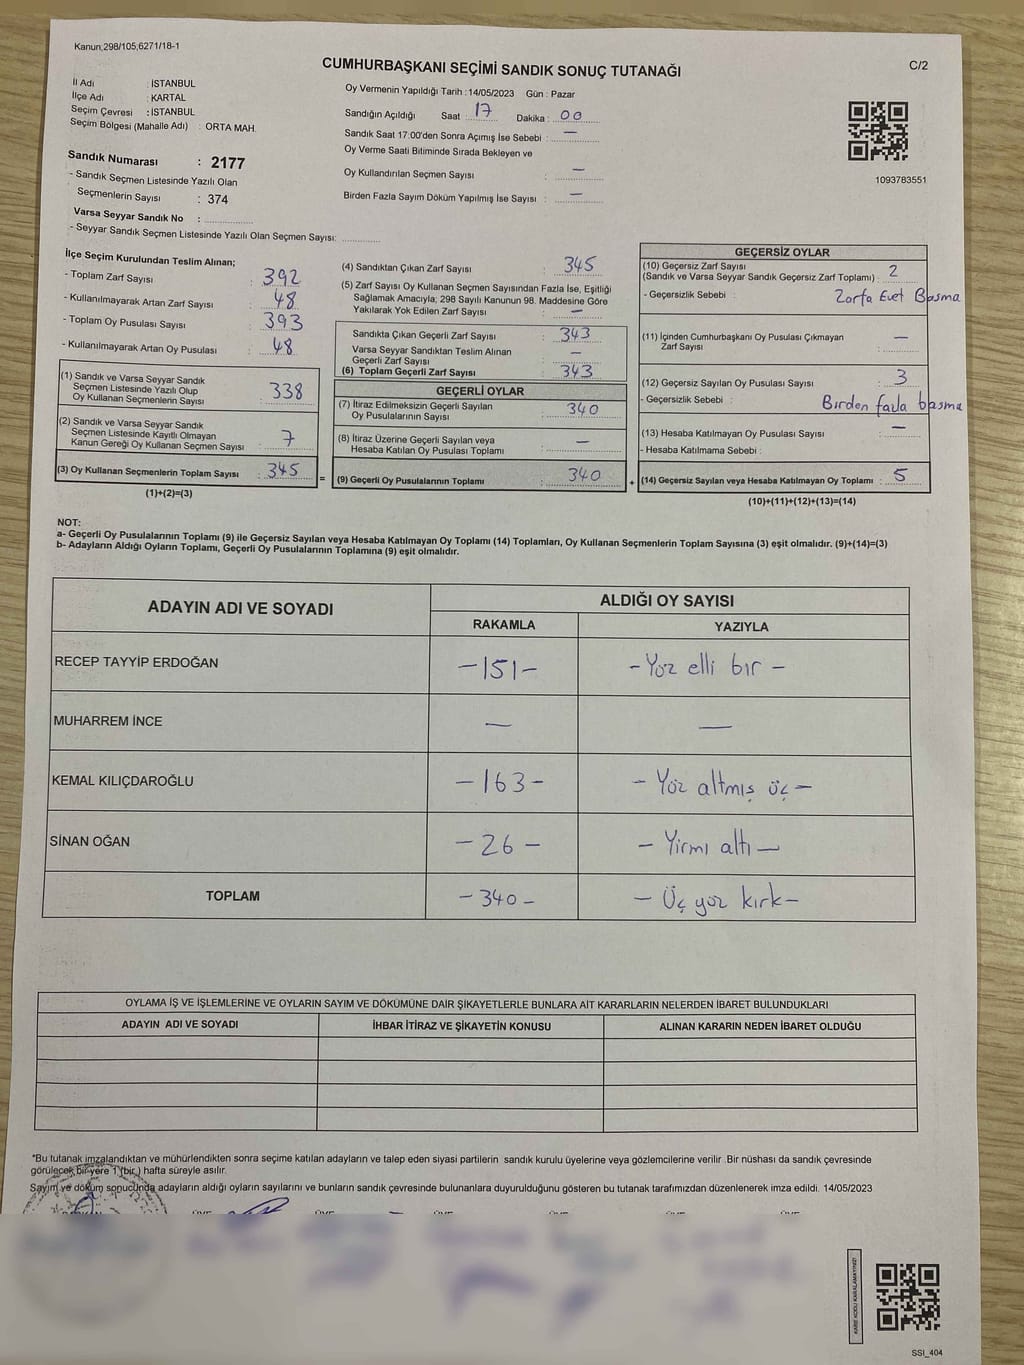 Kanun,298/105,6271/18-1
C/2
CUMHURBAŞKANI SEÇİMİ SANDIK SONUÇ TUTANAĞI
İl Adı : İSTANBUL
İlçe Adı : KARTAL
Seçim Çevresi : İSTANBUL
Seçim Bölgesi (Mahalle Adı) : ORTA MAH.
Sandık Numarası : 2177
- Sandık Seçmen Listesinde Yazılı Olan
Seçmenlerin Sayısı : 374
Varsa Seyyar Sandık No :
- Seyyar Sandık Seçmen Listesinde Yazılı Olan Seçmen Sayısı:
Oy Vermenin Yapıldığı Tarih : 14/05/2023 Gün : Pazar
Sandığın Açıldığı Saat : 17 Dakika : 00
Sandık Saat 17:00'den Sonra Açımış İse Sebebi : —
Oy Verme Saati Bitiminde Sırada Bekleyen ve
Oy Kullandırılan Seçmen Sayısı : —
Birden Fazla Sayım Döküm Yapılmış İse Sayısı : —
1093783551
İlçe Seçim Kurulundan Teslim Alınan;
- Toplam Zarf Sayısı : 392
- Kullanılmayarak Artan Zarf Sayısı : 48
- Toplam Oy Pusulası Sayısı : 393
- Kullanılmayarak Artan Oy Pusulası : 48
(1) Sandık ve Varsa Seyyar Sandık
Seçmen Listesinde Yazılı Olup
Oy Kullanan Seçmenlerin Sayısı : 338
(2) Sandık ve Varsa Seyyar Sandık
Seçmen Listesinde Kayıtlı Olmayan
Kanun Gereği Oy Kullanan Seçmen Sayısı : 7
(3) Oy Kullanan Seçmenlerin Toplam Sayısı : 345
(1)+(2)=(3)
=
(4) Sandıktan Çıkan Zarf Sayısı : 345
(5) Zarf Sayısı Oy Kullanan Seçmen Sayısından Fazla İse, Eşitliği
Sağlamak Amacıyla; 298 Sayılı Kanunun 98. Maddesine Göre
Yakılarak Yok Edilen Zarf Sayısı : —
Sandıkta Çıkan Geçerli Zarf Sayısı : 343
Varsa Seyyar Sandıktan Teslim Alınan
Geçerli Zarf Sayısı : —
(6) Toplam Geçerli Zarf Sayısı : 343
GEÇERLİ OYLAR
(7) İtiraz Edilmeksizin Geçerli Sayılan
Oy Pusulalarının Sayısı : 340
(8) İtiraz Üzerine Geçerli Sayılan veya
Hesaba Katılan Oy Pusulası Toplamı : —
(9) Geçerli Oy Pusulalarının Toplamı : 340
+
GEÇERSİZ OYLAR
(10) Geçersiz Zarf Sayısı
(Sandık ve Varsa Seyyar Sandık Geçersiz Zarf Toplamı) : 2
- Geçersizlik Sebebi : Zarfa Evet Basma
(11) İçinden Cumhurbaşkanı Oy Pusulası Çıkmayan
Zarf Sayısı : —
(12) Geçersiz Sayılan Oy Pusulası Sayısı : 3
- Geçersizlik Sebebi : Birden fazla basma
(13) Hesaba Katılmayan Oy Pusulası Sayısı : —
- Hesaba Katılmama Sebebi :
(14) Geçersiz Sayılan veya Hesaba Katılmayan Oy Toplamı : 5
(10)+(11)+(12)+(13)=(14)
NOT:
a- Geçerli Oy Pusulalarının Toplamı (9) ile Geçersiz Sayılan veya Hesaba Katılmayan Oy Toplamı (14) Toplamları, Oy Kullanan Seçmenlerin Toplam Sayısına (3) eşit olmalıdır. (9)+(14)=(3)
b- Adayların Aldığı Oyların Toplamı, Geçerli Oy Pusulalarının Toplamına (9) eşit olmalıdır.
ADAYIN ADI VE SOYADI
ALDIĞI OY SAYISI
RAKAMLA YAZIYLA
RECEP TAYYİP ERDOĞAN —151— —Yüz elli bir —
MUHARREM İNCE — —
KEMAL KILIÇDAROĞLU —163— — Yüz altmış üç —
SİNAN OĞAN —26— — Yirmi altı —
TOPLAM —340— — Üç yüz kırk—
OYLAMA İŞ VE İŞLEMLERİNE VE OYLARIN SAYIM VE DÖKÜMÜNE DAİR ŞİKAYETLERLE BUNLARA AİT KARARLARIN NELERDEN İBARET BULUNDUKLARI
ADAYIN ADI VE SOYADI İHBAR İTİRAZ VE ŞİKAYETİN KONUSU ALINAN KARARIN NEDEN İBARET OLDUĞU
"Bu tutanak imzalandıktan ve mühürlendikten sonra seçime katılan adayların ve talep eden siyasi partilerin sandık kurulu üyelerine veya gözlemcilerine verilir. Bir nüshası da sandık çevresinde
görülecek bir yere 1 (bir ) hafta süreyle asılır.
Sayım ve döküm sonucunda adayların aldığı oyların sayılarını ve bunların sandık çevresinde bulunanlara duyurulduğunu gösteren bu tutanak tarafımızdan düzenlenerek imza edildi. 14/05/2023
KARE KODU KARALAMAYINIZ!
SSI_404